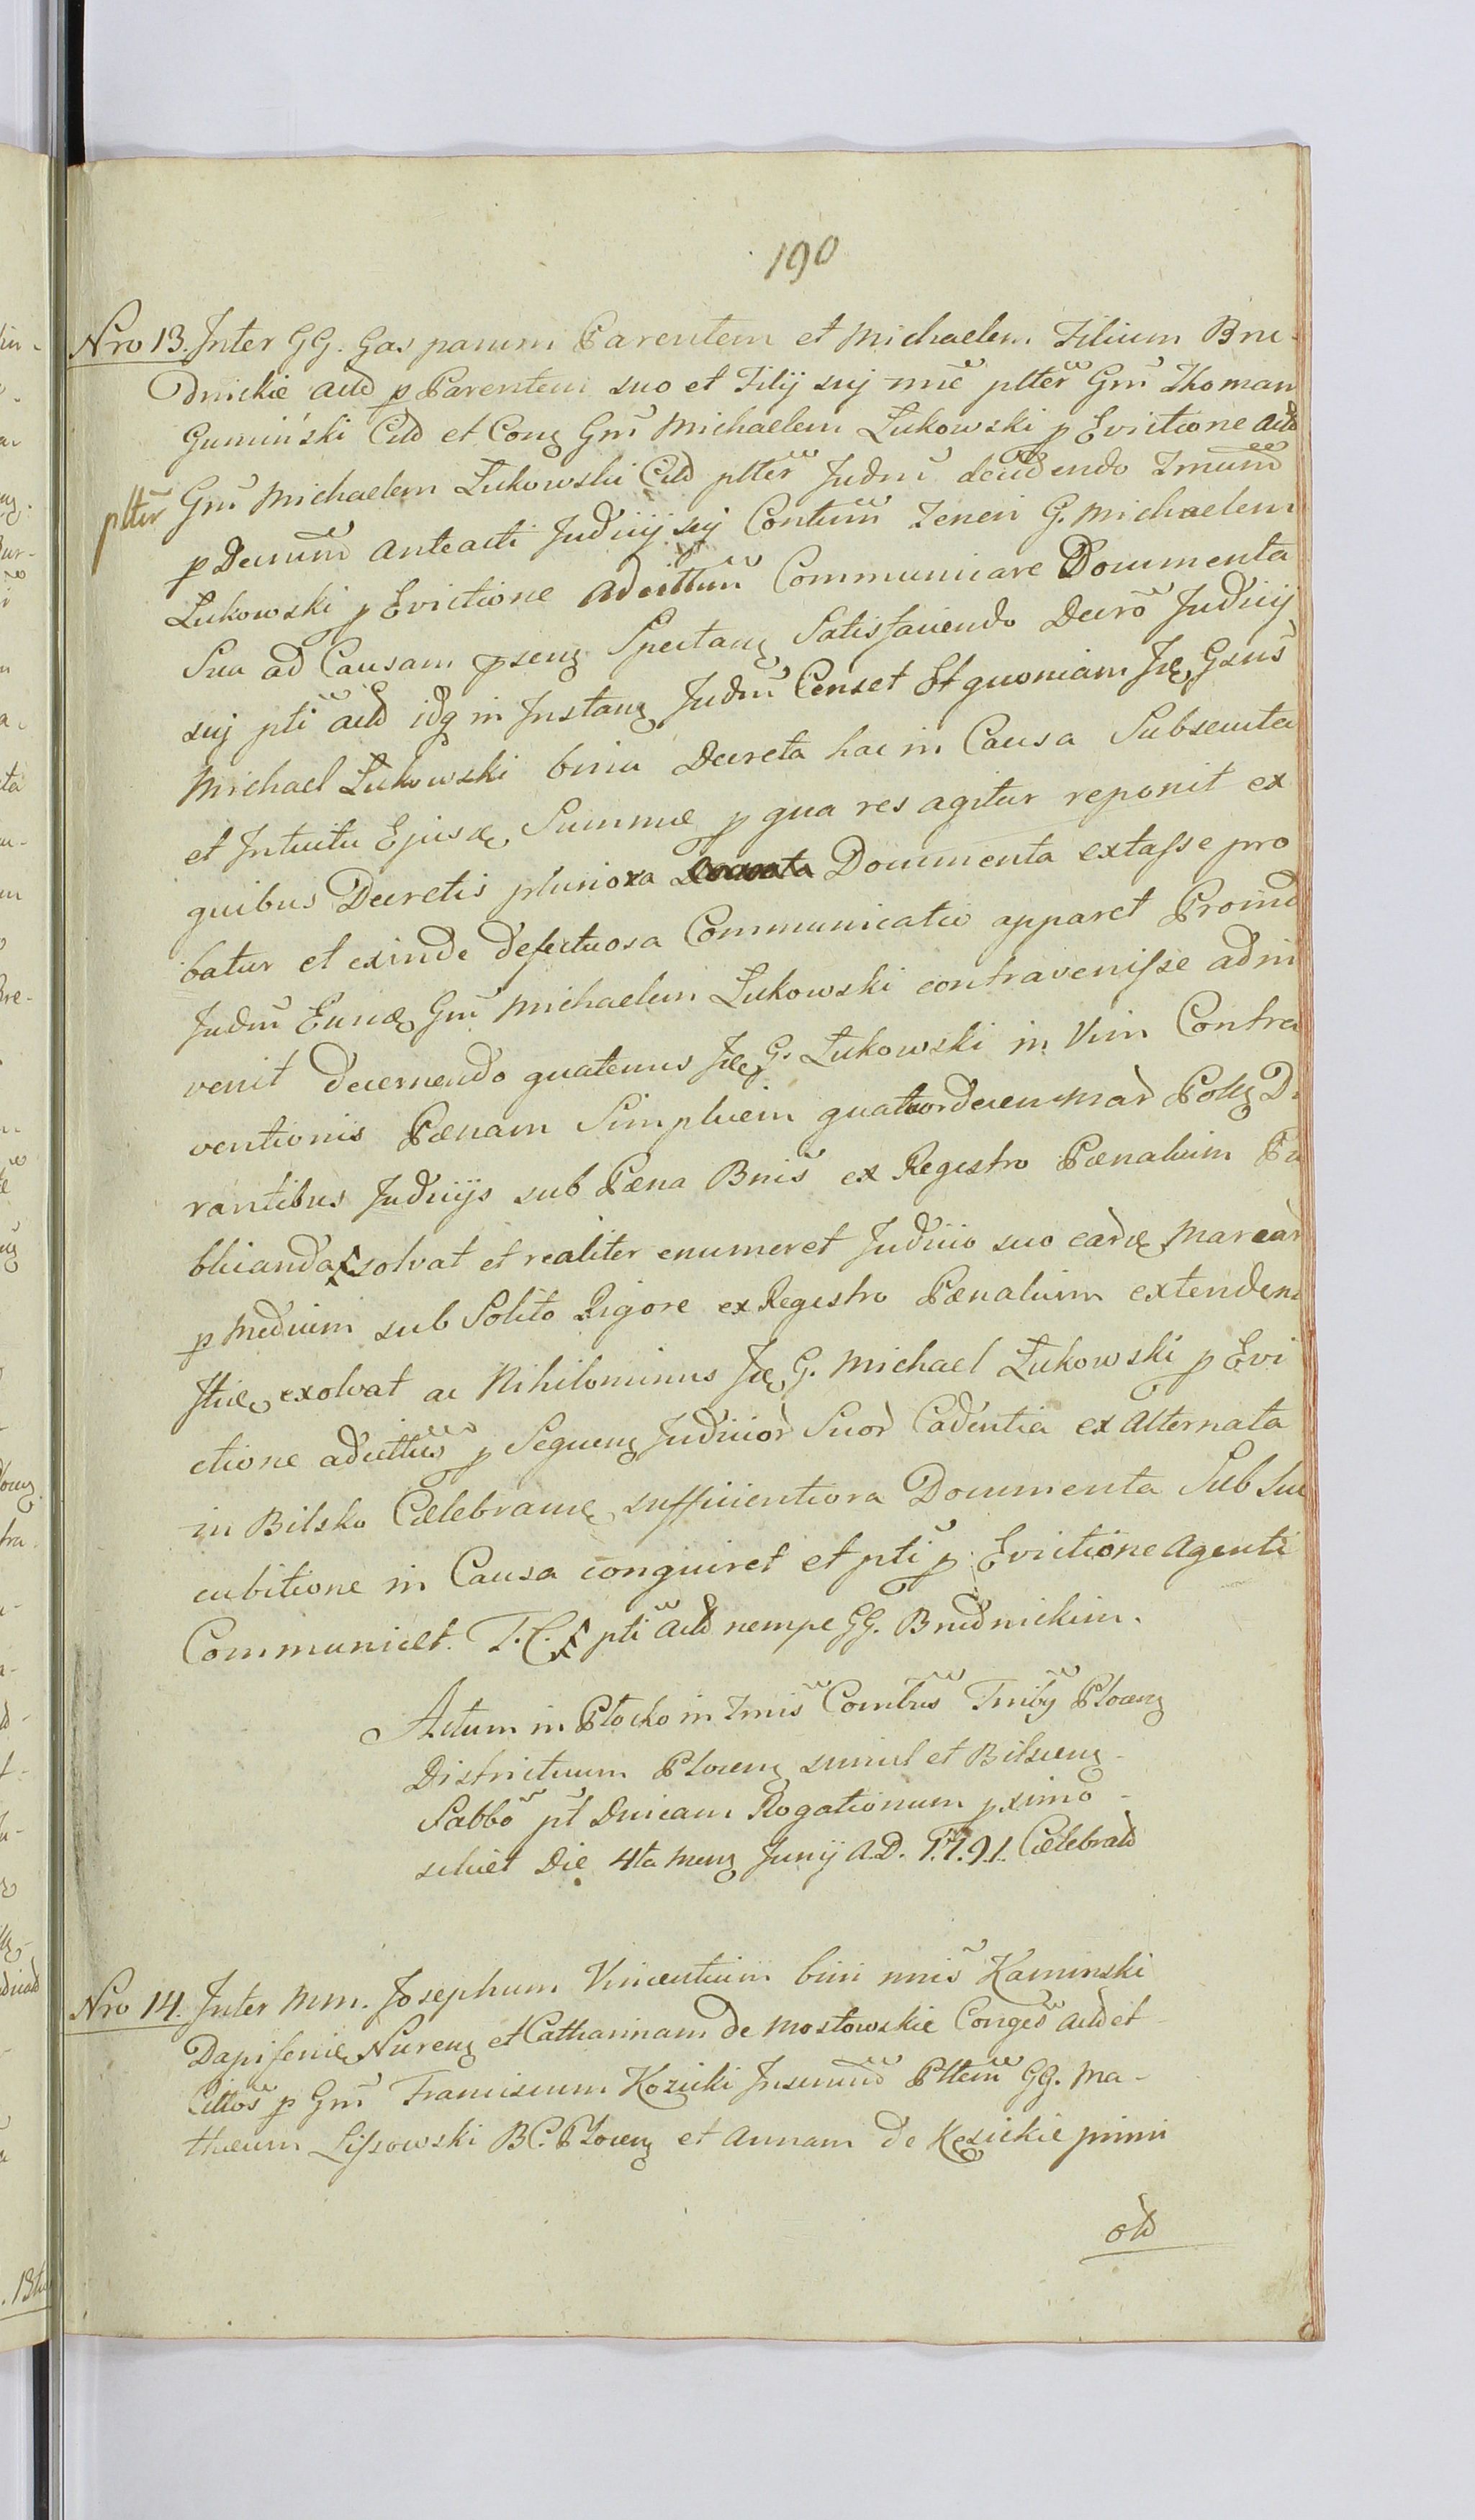 190
Nro 13. Inter GG. Gasparum Parentem et Michaelem Filium Bru-
dnickie actã p Parentem suo et Filij suj nñe plter Gm̃ Thomam
Gumiński Citã et Conʒ Gm̃ Michaelem Łukowski p Evictione actã
plter Gm̃ Michaelem Łukowski Citã plter Judm̃ decidendo Tmum̃
p Decum̃ anteacti Judicij suj Contum̃ Teneri G. Michaelem
Łukowski p Evictione adcittum̃ Communicare Documenta
Sua ad Causam psenʒ Spectanʒ Satisfaciendo Decro Judicij
suj pti actã idq in Instanʒ Judm̃ Censet Et quoniam Iđę Gsus
Michael Łukowski bina Decreta hac in Causa Subsecuta
et Intuitu Ejusđ Summæ p qua res agitur reponit ex
quibus Decretis pluriora Documenta extasse pro
batur et exinde defectuosa Communicatio apparet Proinđ
Judm̃ Eunđ Gm̃ Michaelem Łukowski contravenisse adin
venit decernendo quatenus Iđę G. Łukowski in Vim Contra
ventionis Pænam Simplicem quatuordecem Mar̃ Polʒ Du
rantibus Judicijs sub Pæna Bnis ex Registro Pænalium Pu
blicanda solvat et realiter enumeret Judicio suo earđ Marcar̃
p Medium sub Solito Rigore ex Registro Pænalium extendenđ
Itiđ exolvat ac Nihilominus Iđę G. Michael Łukowski p Evi
ctione adcittus p Sequenʒ Judicior̃ Suor̃ Cadentia ex Alternata
in Bilsko Cælebranđ sufficientiora Documenta Sub Suc
cubitione in Causa conquiret et pti p Evictione Agenti
Communicet. T. C. pti actã nempe GG. Brudnickim.
Actum in Płocko in Tmis Comibus Tmiby Plocenʒ
Districtuum Plocenʒ simul et Bilscenʒ
Sabbo pt Dnicam Rogationum pximo
scilicet Die 4ta Menʒ Junij A.D. 1791. Cælebratã
Nro 14. Inter Mm. Josephum Vincentium bini nñis Kaminski
Dapiferiđ Nurenʒ et Catharinam de Mostowskie Conges actã et
Cittos p Gm̃ Franciscum Kozicki Insimul Pltem GG. Ma-
thæum Lissowski B.C. Plocenʒ et Annam de Kęsickie primi
otã